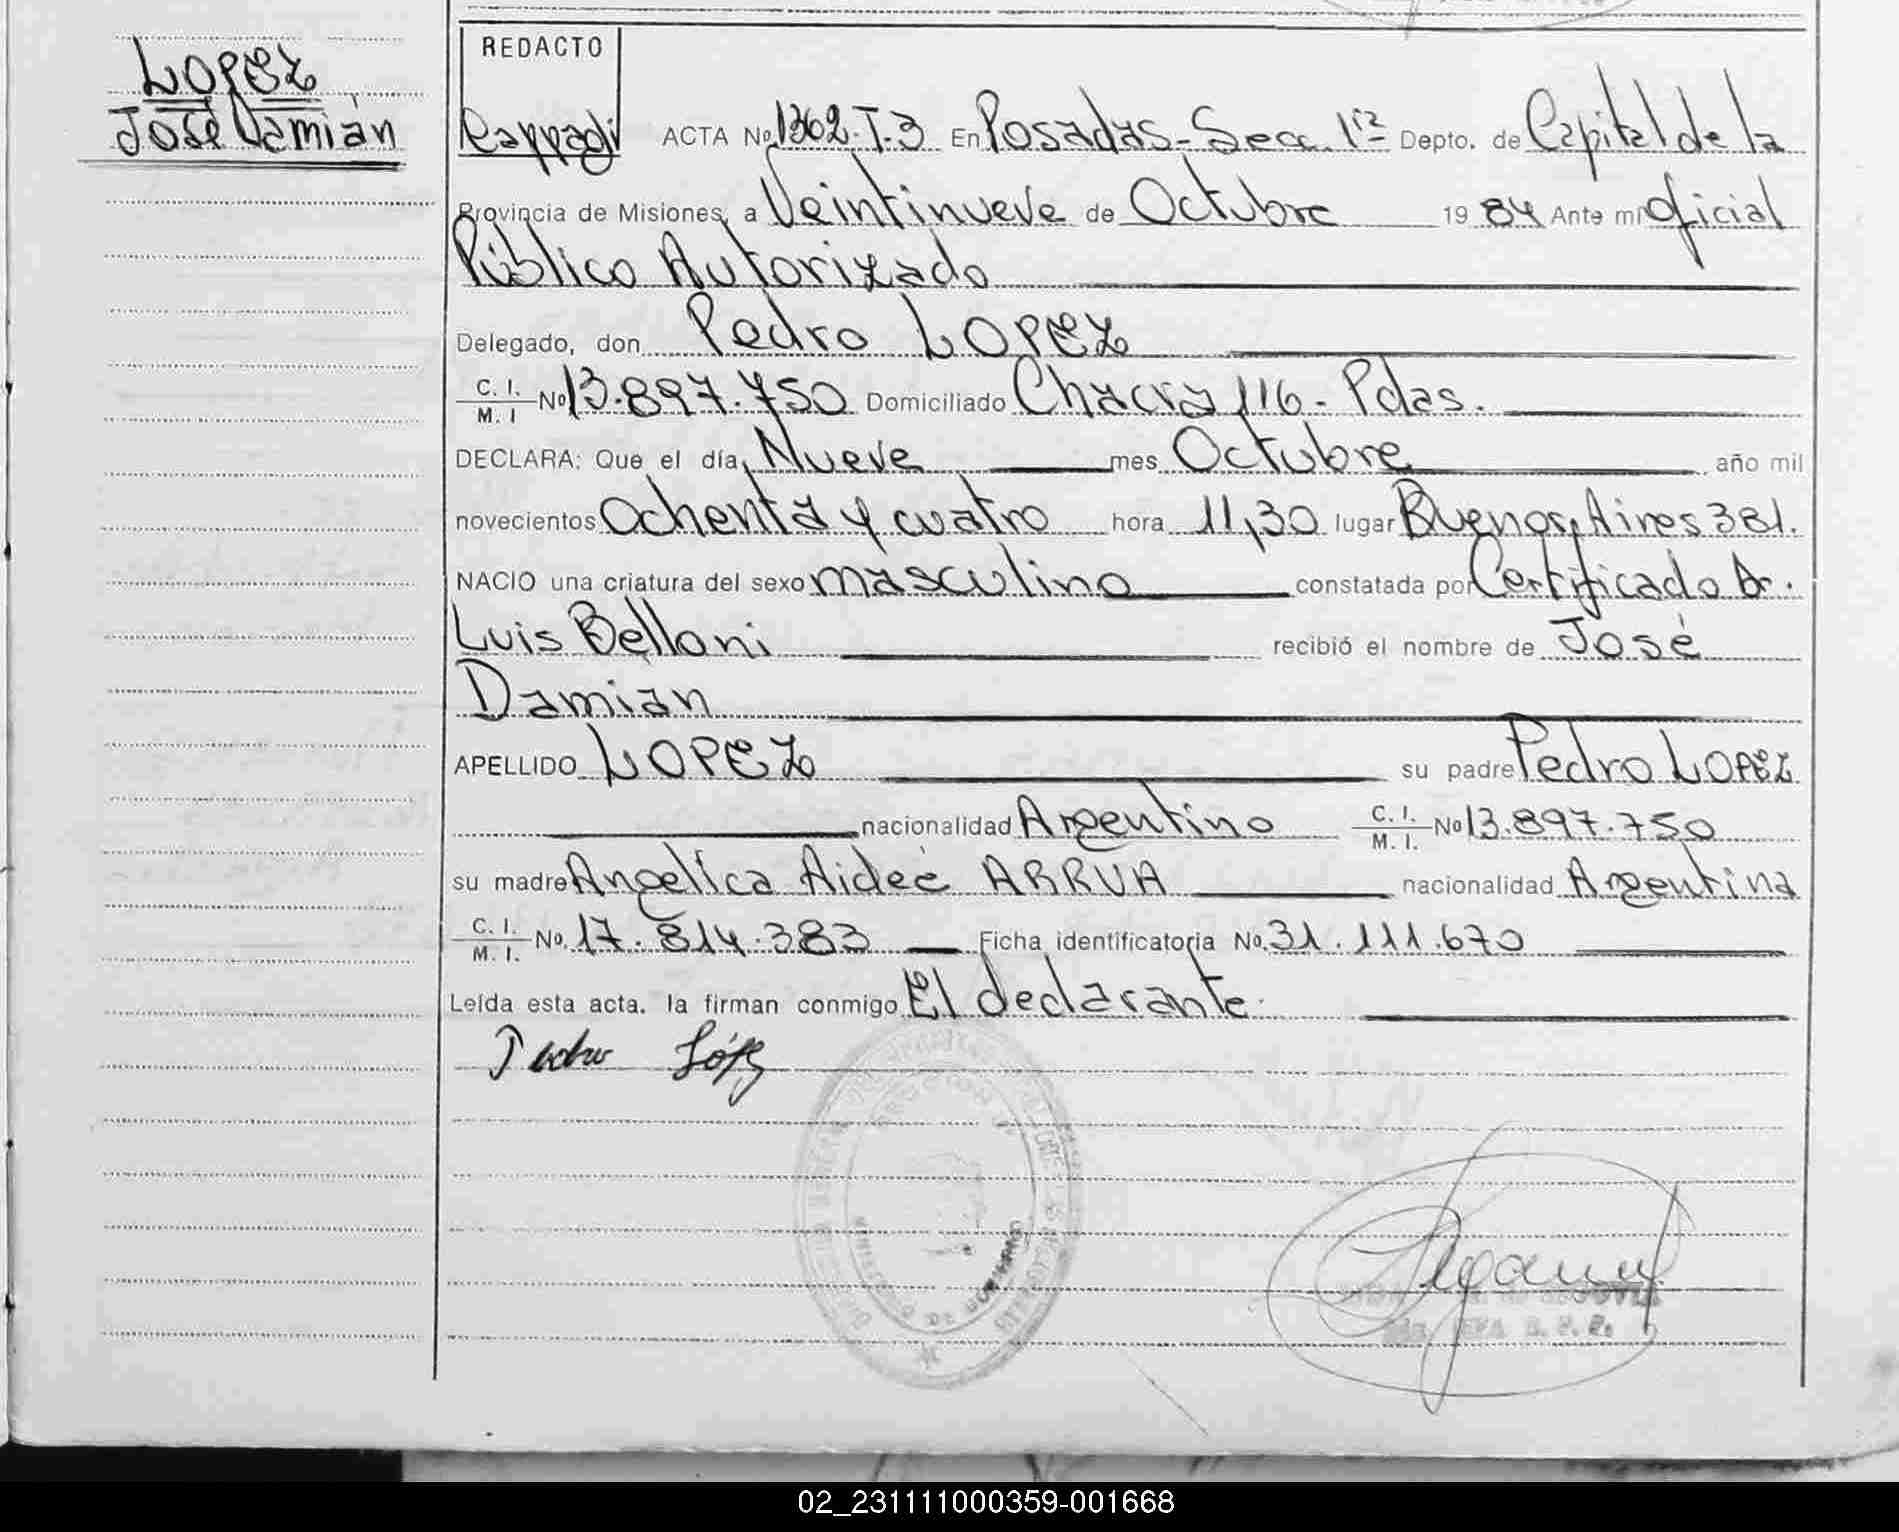 LOPEZ
José Damián
REDACTO
ACTA No 1362-T-3 En Posadas - Secc. 1ra Depto. de Capital de la
Provincia de Misiones, a Veintinueve de Octubre 19 84 Ante mi Oficial
Público Autorizado
Delegado, don Pedro LOPEZ
C. I.
M. I No 13.897.750 Domiciliado Chacra 116 - Pdas.
DECLARA: Que el día, Nueve mes Octubre año mil
novecientos Ochenta y cuatro hora 11,30 lugar Buenos Aires 381.
NACIO una criatura del sexo masculino constatada por Certificado Dr.
Luis Belloni recibió el nombre de José
Damián
APELLIDO LOPEZ su padre Pedro LOPEZ
nacionalidad Argentino C. I. M. I. No 13.897.750
su madre Angelíca Aideé ARRUA nacionalidad Argentina
C. I. M. I. No. 17.814.383 Ficha identificatoria No. 31.111.670
Leída esta acta. la firman conmigo El declarante.
Pedro López
02_231111000359-001668